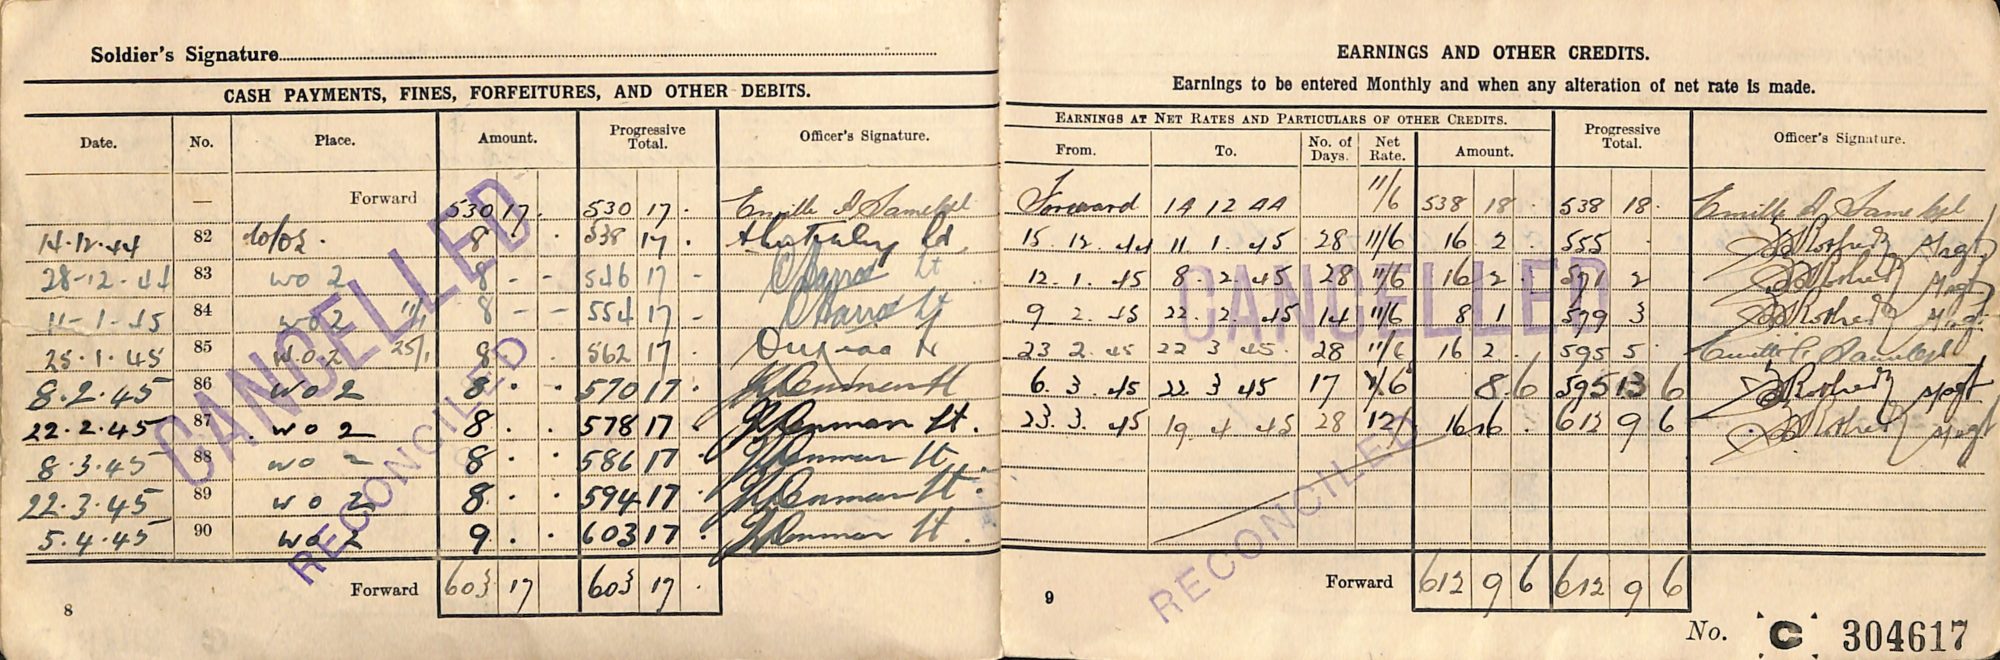 Soldier's Signature
CASH PAYMENTS, FINES, FORFEITURES, AND OTHER DEBITS.
Date. No. Place. Amount. Progressive Total. Officer's Signature.
— Forward 530 17 . 530 17 .
14.12.44 82 8 . . 538 17 .
28-12-44 83 WO 2 8 - - 546 17 -
11-1-45 84 WO 2 11/1 8 - - 554 17 -
25.1.45 85 W.O.2 25/1 8 . . 562 17 .
8.2.45 86 WO 2 8 . . 570 17 .
22.2.45 87 WO 2 8 . . 578 17 . Lt.
8.3.45 88 WO 2 8 . . 586 17 . Lt.
22.3.45 89 WO 2 8 . . 594 17 . Lt.
5.4.45 90 WO 2 9 . . 603 17 . Lt.
Forward 603 17 603 17 .
8
CANCELLED
RECONCILED
EARNINGS AND OTHER CREDITS.
Earnings to be entered Monthly and when any alteration of net rate is made.
EARNINGS AT NET RATES AND PARTICULARS OF OTHER CREDITS. Progressive Total. Officer's Signature.
From. To. No. of Days. Net Rate. Amount.
Forward 14 12 44 11/6 538 18 . 538 18 .
15.12.44 11.1.45 28 11/6 16 2 . 555 .
12.1.45 8.2.45 28 11/6 16 2 . 571 2
9 2.45 22.2.45 14 11/6 8 1 579 3
23 2.45 22 3 45. 28 11/6 16 2 . 595 5
6.3.45 22.3 45 17 /6 8.6 595 13 6
23.3.45 19.4 45 28 12/ 16 16 . 612 9 6
Forward 612 9 6 612 9 6
9
CANCELLED
RECONCILED
No. C 304617